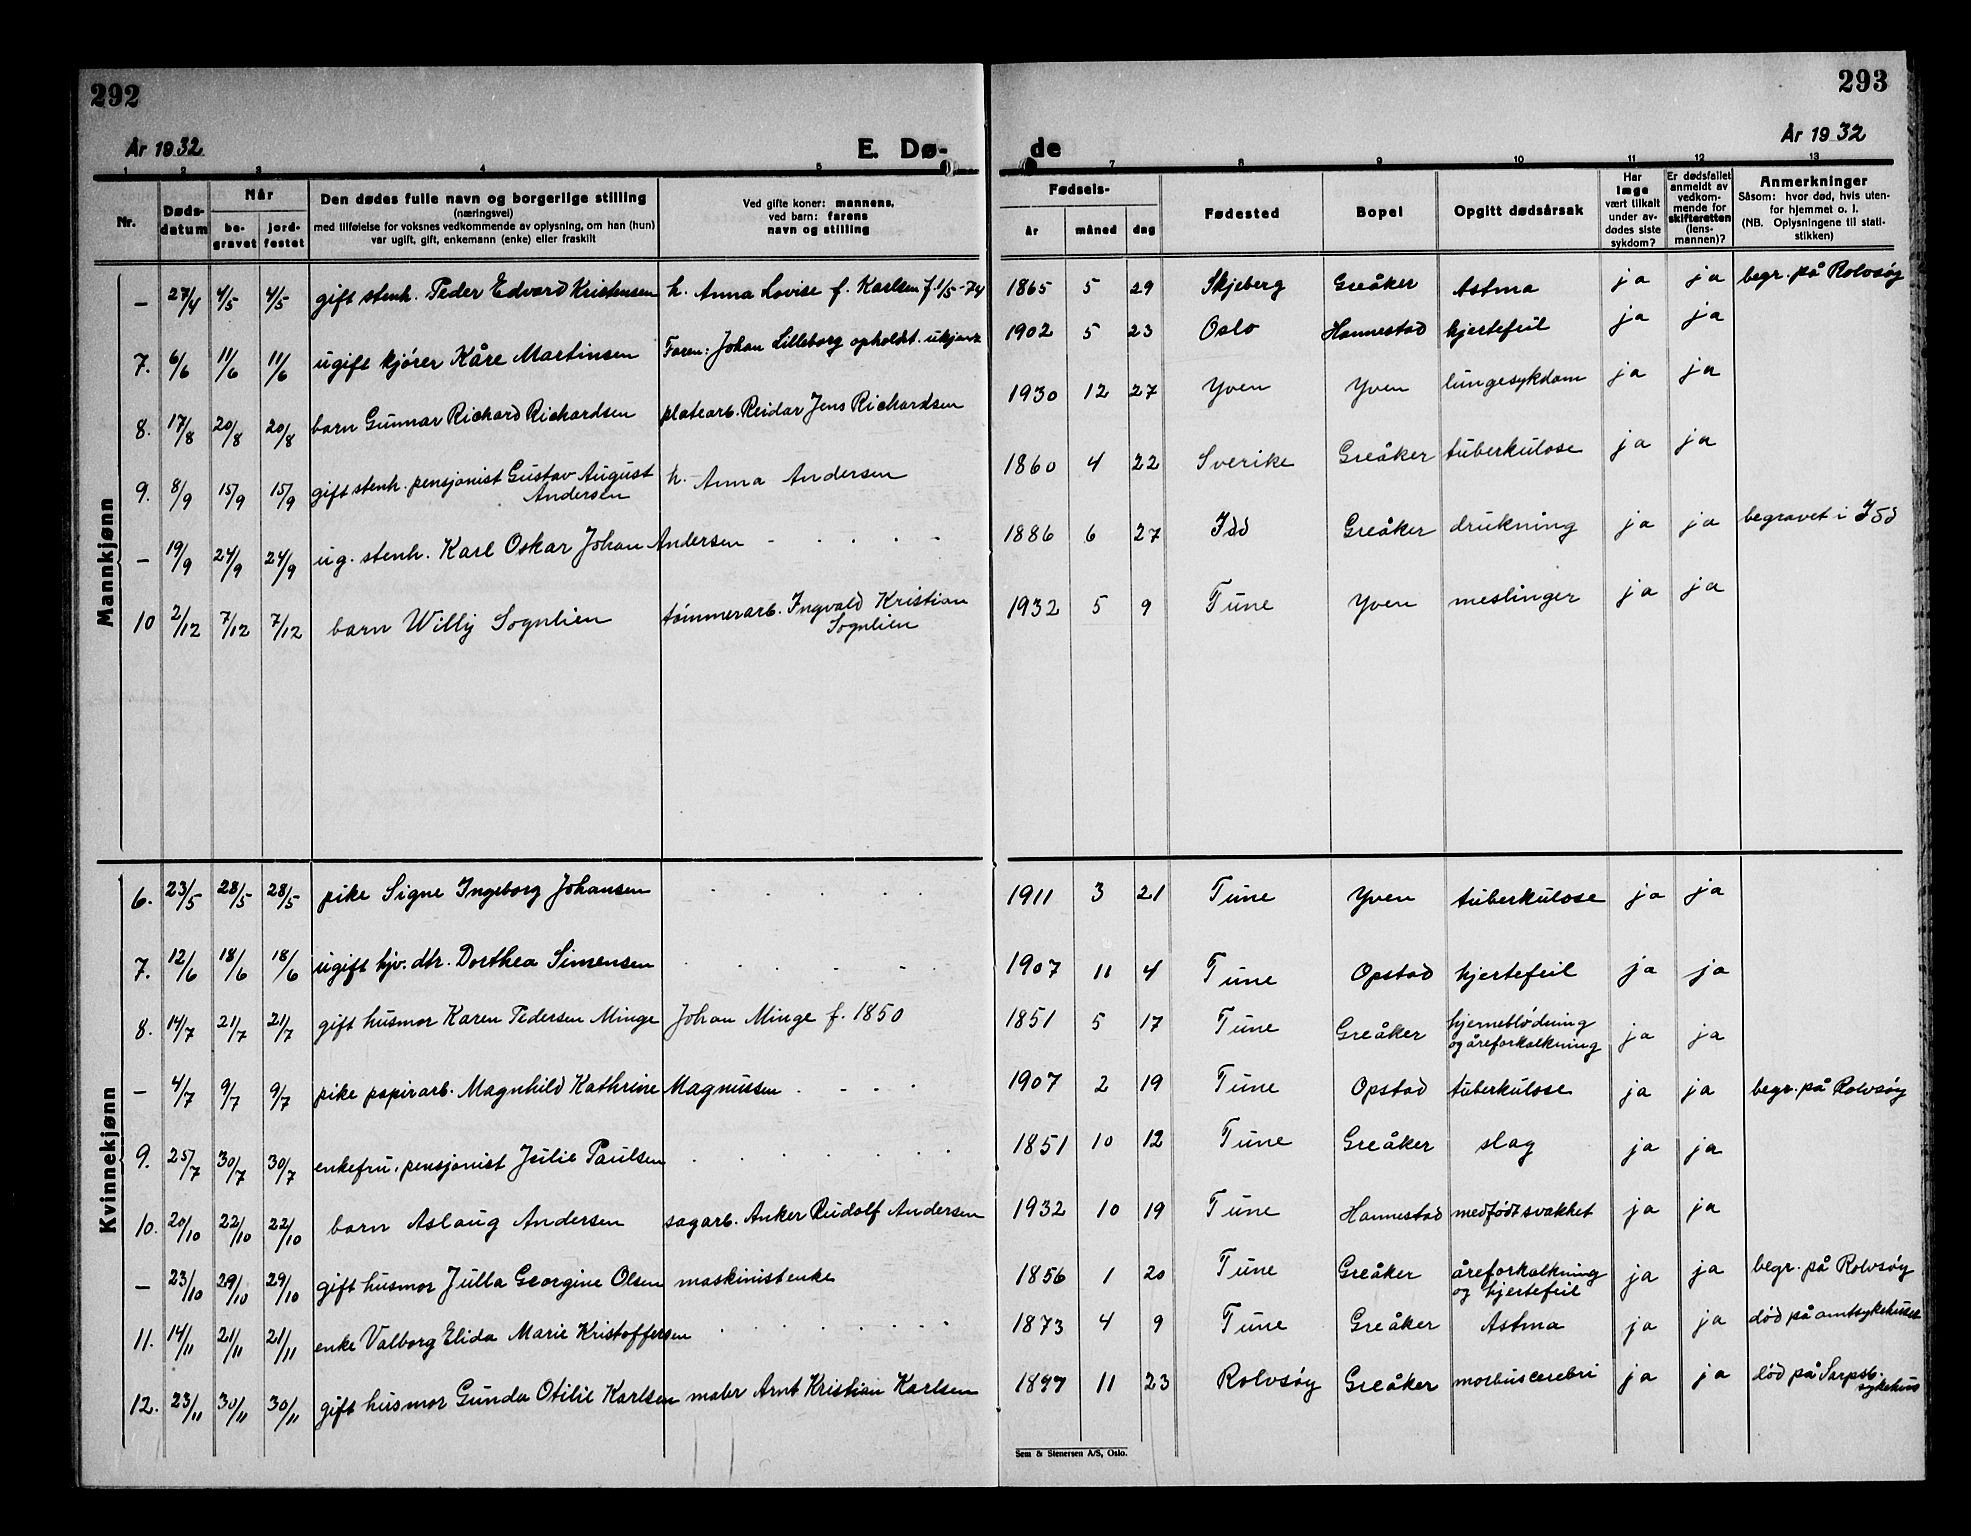 292
293
År 1932
E. Dø-
de
År 1932
1 2 3 4 5 7 8 9 10 11 12 13
Nr.
Døds-
datum
Når
be-
gravet
jord-
festet
Den dødes fulle navn og borgerlige stilling
(næringsvei)
med tilføielse for voksnes vedkommende av oplysning, om han (hun)
var ugift, gift, enkemann (enke) eller fraskilt
Ved gifte koner: mannens,
ved barn: farens
navn og stilling
Fødsels-
år måned dag
Fødested
Bopel
Opgitt dødsårsak
Har
læge
vært tilkalt
under av-
dødes siste
sykdom?
Er dødsfallet
anmeldt av
vedkom-
mende for
skifteretten
(lens-
mannen)?
Anmerkninger
Såsom: hvor død, hvis uten-
for hjemmet o. l.
(NB. Oplysningene til stati-
stikken)
Mannkjønn
— 27/4 4/5 4/5 gift stenh. Peder Edvard Kristensen h. Anna Lovise f. Karlsen f. 1/5-74 1865 5 29 Skjeberg Greåker Astma ja ja begr. på Rolvsøy
7. 6/6 11/6 11/6 ugift kjører Kåre Martinsen Faren: Johan Lilleborg opholdt. ukjent 1902 5 23 Oslo Hannestad hjertefeil ja ja
8. 17/8 20/8 20/8 barn Gunnar Richard Richardsen platearb. Reidar Jens Richardsen 1930 12 27 Yven Yven lungesykdom ja ja
9. 8/9 15/9 15/9 gift stenh. pensjonist Gustav August
Andersen h. Anna Andersen 1860 4 22 Sverike Greåker tuberkulose ja ja
— 19/9 24/9 24/9 ug. stenh. Karl Oskar Johan Andersen - - - - - 1886 6 27 Idd Greåker drukning ja ja begravet i Idd
10 2/12 7/12 7/12 barn Willy Sognlien tømmerarb. Ingvald Kristian
Sognlien 1932 5 9 Tune Yven meslinger ja ja
Kvinnekjønn
6. 23/5 28/5 28/5 pike Signe Ingeborg Johansen . . . . . 1911 3 21 Tune Yven tuberkulose ja ja
7. 12/6 18/6 18/6 ugift hjv. dtr. Dorthea Simensen . . . . . 1907 11 4 Tune Opstad hjertefeil ja ja
8. 14/7 21/7 21/7 gift husmor Karen Pedersen Minge Johan Minge f. 1850 1851 5 17 Tune Greåker hjerneblødning
og åreforkalkning ja ja
— 4/7 9/7 9/7 pike papirarb. Magnhild Kathrine Magnussen - - - - 1907 2 19 Tune Opstad tuberkulose ja ja begr. på Rolvsøy
9. 25/7 30/7 30/7 enkefru, pensjonist Julie Paulsen . . . . . 1851 10 12 Tune Greåker slag ja ja
10. 20/10 22/10 22/10 barn Aslaug Andersen sagarb. Anker Rudolf Andersen 1932 10 19 Tune Hannestad medfødt svakhet ja ja
— 23/10 29/10 29/10 gift husmor Julla Georgine Olsen maskinistenke 1856 1 20 Tune Greåker åreforkalkning
og hjertefeil ja ja begr. på Rolvsøy
11. 14/11 21/11 21/11 enke Valborg Elida Marie Kristoffersen . . . . . 1873 4 9 Tune Greåker Astma ja ja død på amtsykehuset
12. 23/11 30/11 30/11 gift husmor Gunda Otilie Karlsen malr Arnt Kristian Karlsen 1897 11 23 Rolvsøy Greåker morbus cerebri ja ja død på Sarpsb.
sykehus
Sem & Stenersen A/S, Oslo.